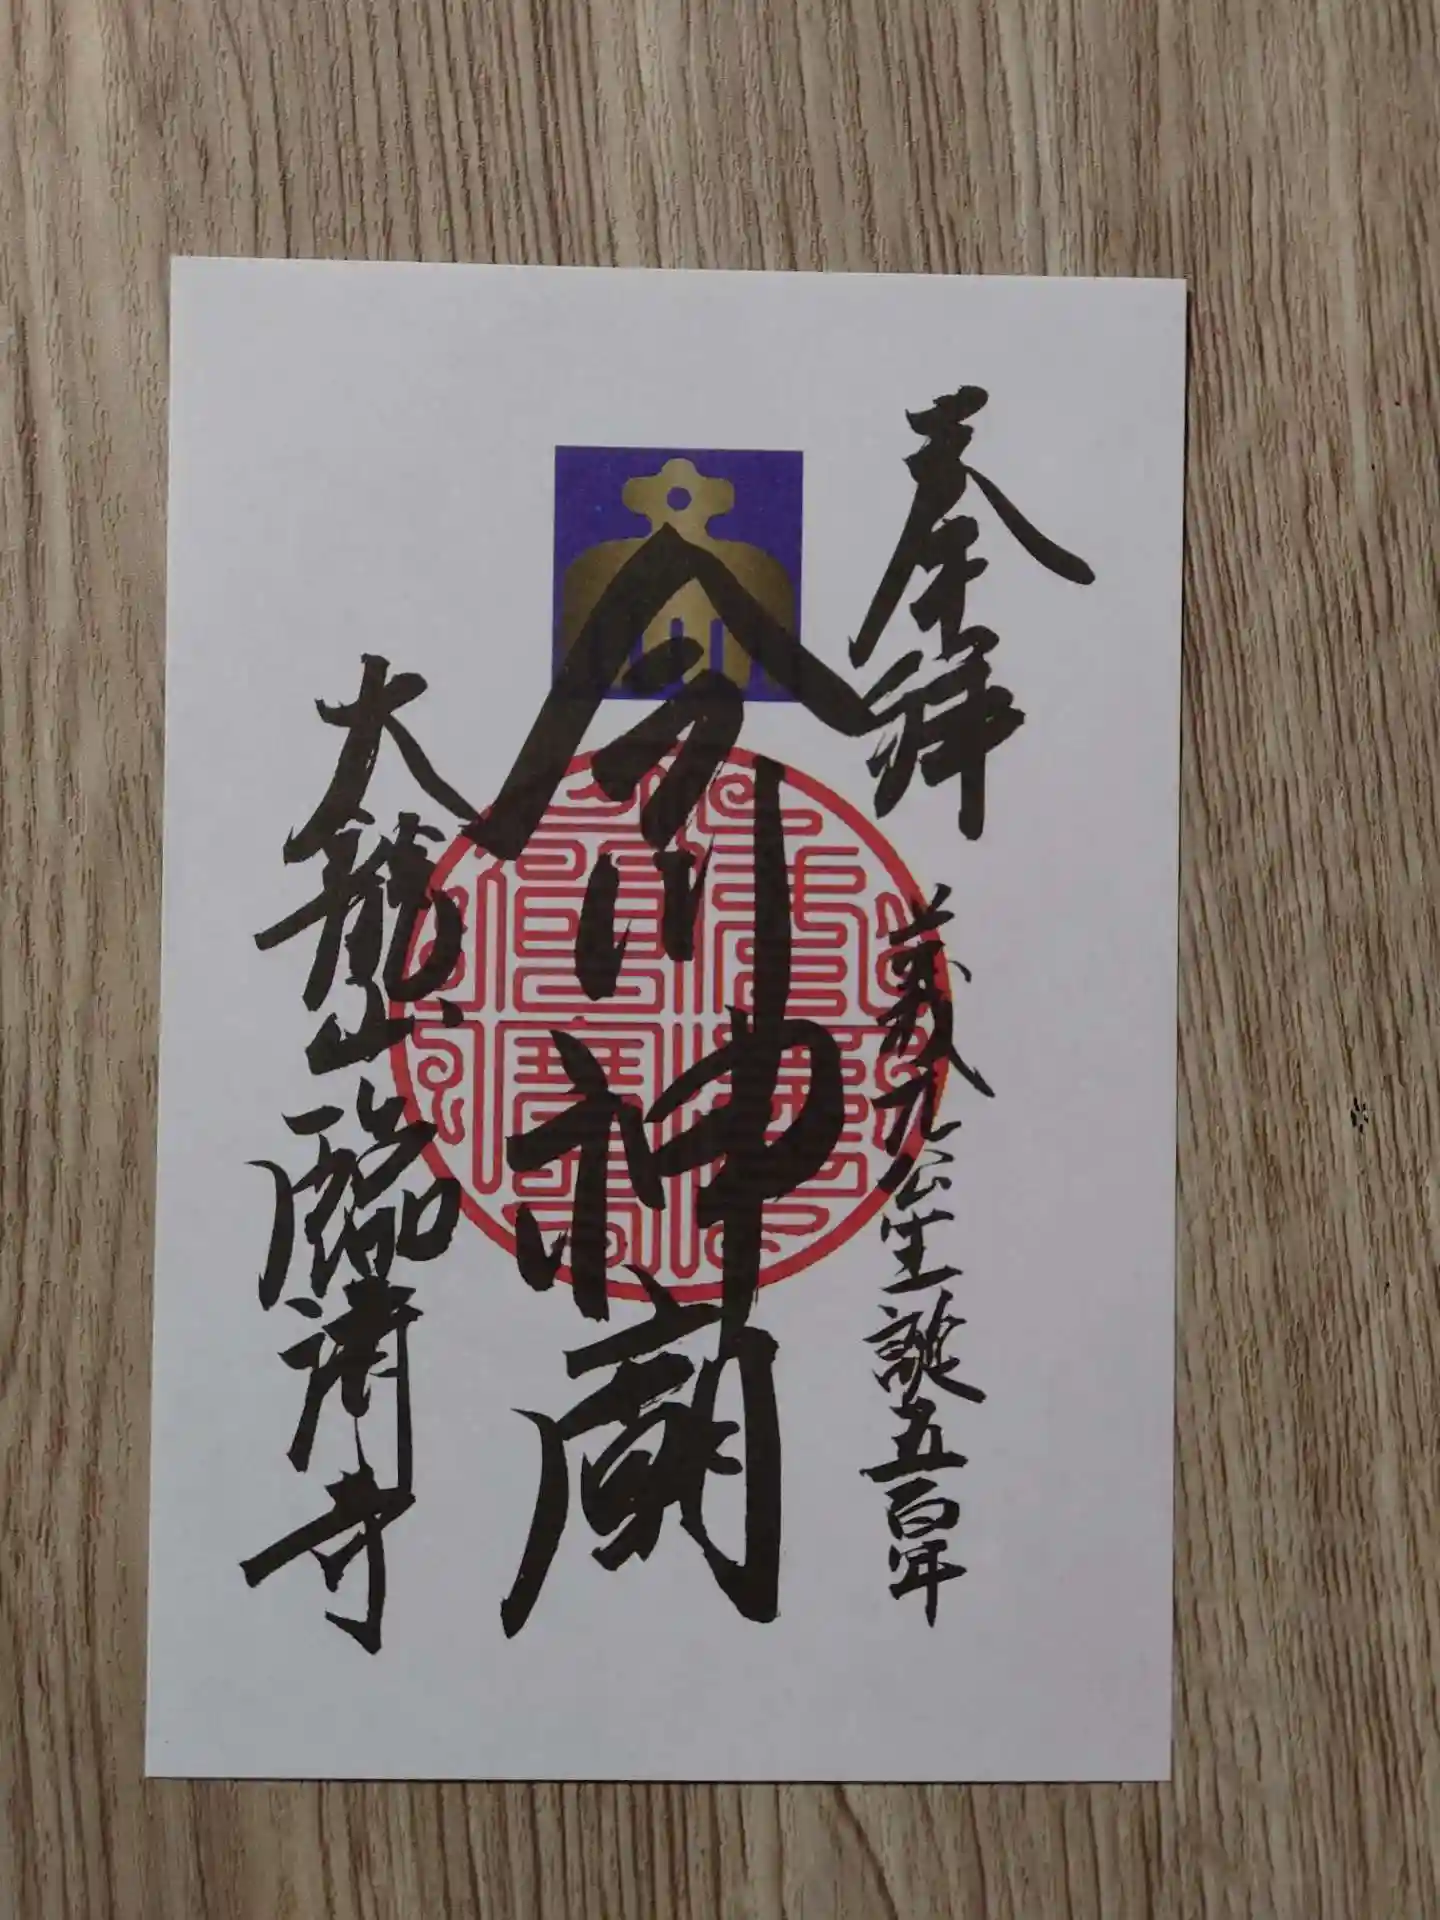 奉拝
義元公生誕五百年
今川神廟
大龍山臨済寺